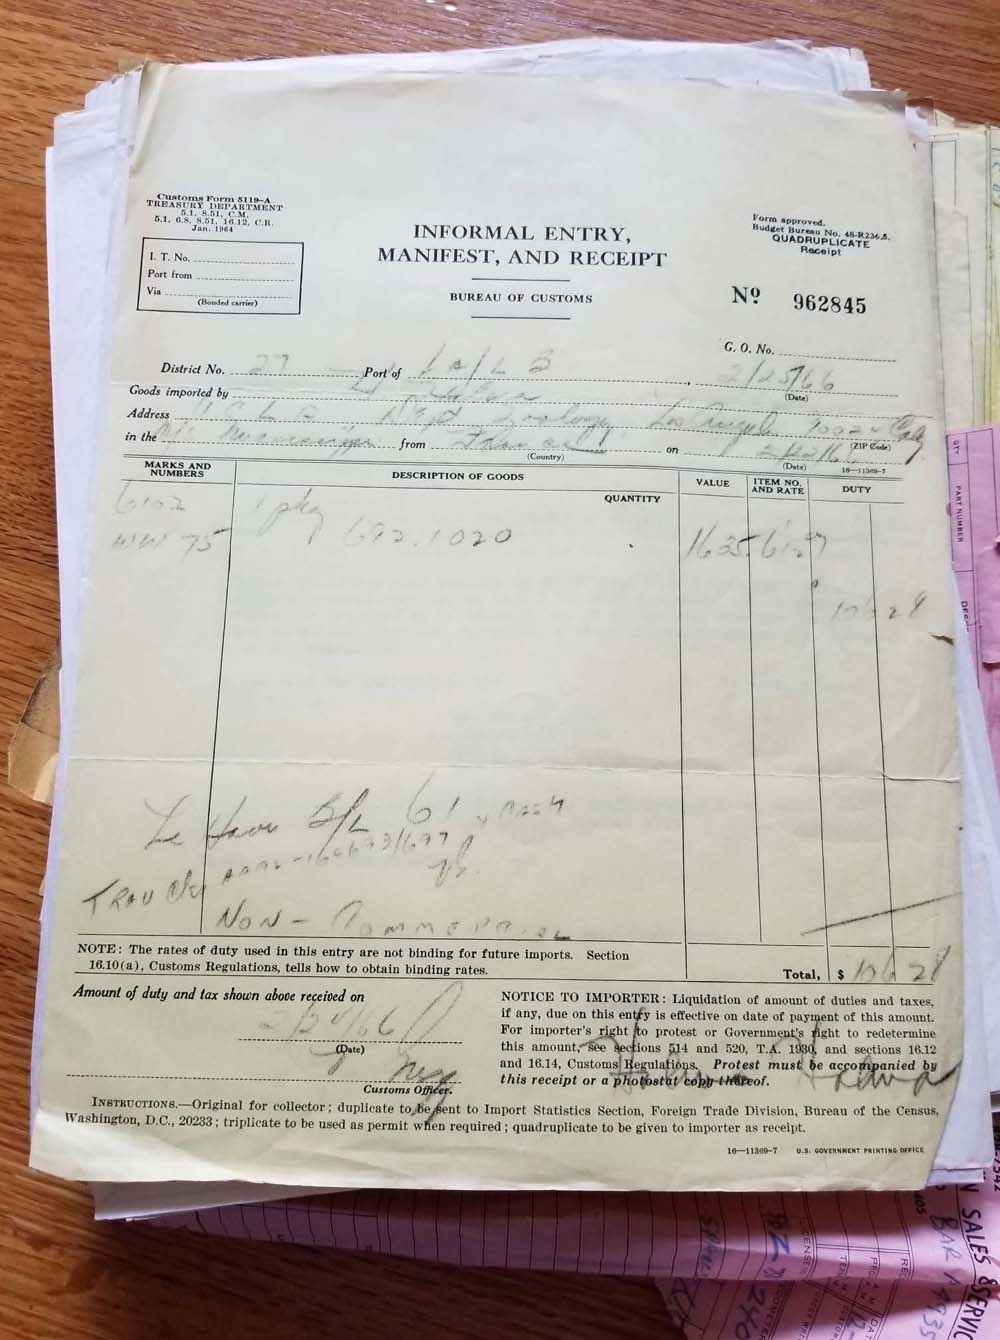 Customs Form 5119-A
TREASURY DEPARTMENT
5.1, 8.51, C.M.
5.1, 6.8, 8.51, 16.12, C.R.
Jan. 1964
I. T. No.
Port from
Via
(Bonded carrier)
INFORMAL ENTRY,
MANIFEST, AND RECEIPT
BUREAU OF CUSTOMS
Form approved.
Budget Bureau No. 48-R236.5.
QUADRUPLICATE
Receipt
Nº 962845
G. O. No.
District No. 27 Port of LA/LB, 2/25/66
(Date)
Goods imported by
Address U C L A Dept Zoology, Los Angeles 90024 Calif
(ZIP Code)
in the from France on
(Country)
(Date)
16—11369-7
MARKS AND NUMBERS
DESCRIPTION OF GOODS
QUANTITY
VALUE
ITEM NO. AND RATE
DUTY
6102 1 pkg
WW 75 692.1020 1635
10628
Le Havre B/L 61
NON-
NOTE: The rates of duty used in this entry are not binding for future imports. Section
16.10(a), Customs Regulations, tells how to obtain binding rates.
Total, $ 10628
Amount of duty and tax shown above received on
2/24/66
(Date)
Customs Officer.
NOTICE TO IMPORTER: Liquidation of amount of duties and taxes,
if any, due on this entry is effective on date of payment of this amount.
For importer's right to protest or Government's right to redetermine
this amount, see sections 514 and 520, T.A. 1930, and sections 16.12
and 16.14, Customs Regulations. Protest must be accompanied by
this receipt or a photostat copy thereof.
INSTRUCTIONS.—Original for collector; duplicate to be sent to Import Statistics Section, Foreign Trade Division, Bureau of the Census,
Washington, D.C., 20233; triplicate to be used as permit when required; quadruplicate to be given to importer as receipt.
16—11369-7 U.S. GOVERNMENT PRINTING OFFICE
QTY
PART NUMBER
SALES & SERVI